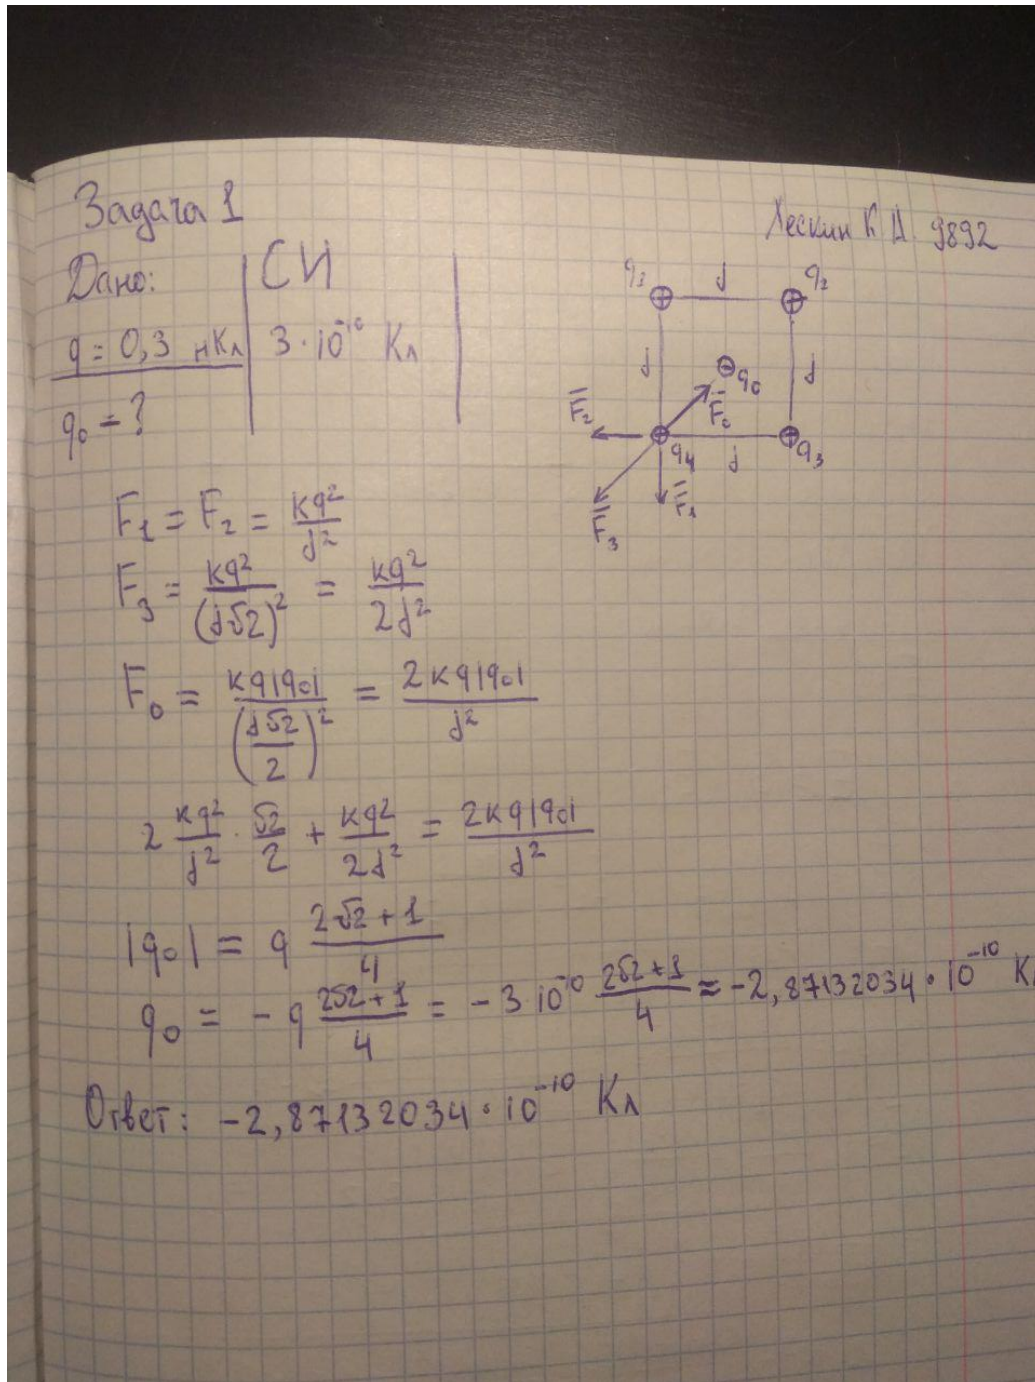 Задача 1
К А 9892
Дано:
СИ
q = 0,3 нКл
3·10⁻¹⁰ Кл
q₀ = ?
q₁ j q₂
j q₀ j
F̅₂ F̅₀
q₄ j q₃
F̅₃ F̅₁
F₁ = F₂ = kq²/j²
F₃ = kq²/(j√2)² = kq²/2j²
F₀ = kq|q₀|/(j√2/2)² = 2kq|q₀|/j²
2 kq²/j² · √2/2 + kq²/2j² = 2kq|q₀|/j²
|q₀| = q (2√2 + 1)/4
q₀ = - q (2√2 + 1)/4 = - 3 10⁻¹⁰ (2√2 + 1)/4 = -2,87132034 · 10⁻¹⁰ К
Ответ: -2,87132034 · 10⁻¹⁰ Кл